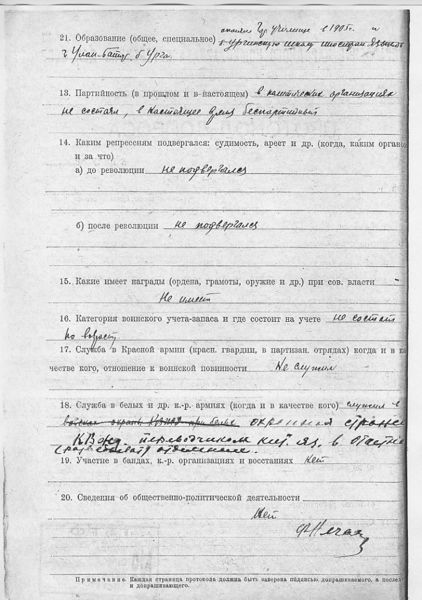 21. Образование (общее, специальное) окончил Гор училище в 1905 г. и
в ургинскую школу иностран языков
г Улан-Батор б. Урга.
13. Партийность (в прошлом и в настоящем) в политических организациях
не состоял, в настоящее время беспартийный
14. Каким репрессиям подвергался: судимость, арест и др. (когда, каким органо
и за что)
а) до революции не подвергался
б) после революции не подвергался
15. Какие имеет награды (ордена, грамоты, оружие и др.) при сов. власти
Не имеет
16. Категория воинского учета-запаса и где состоит на учете не состоит
по возрасту
17. Служба в Красной армии (красн. гвардии, в партизан. отрядах) когда и в ка
честве кого, отношение к воинской повинности Не служил
18. Служба в белых и др. к.-р. армиях (когда и в качестве кого) служил в
охранная стража
КВжд. переводчиком кит. яз. в
отделение.
19. Участие в бандах, к.-р. организациях и восстаниях нет
20. Сведения об общественно-политической деятельности
Нет
Примечание. Каждая страница протокола должна быть заверена подписью допрашиваемого, а послед
и допрашивающего.